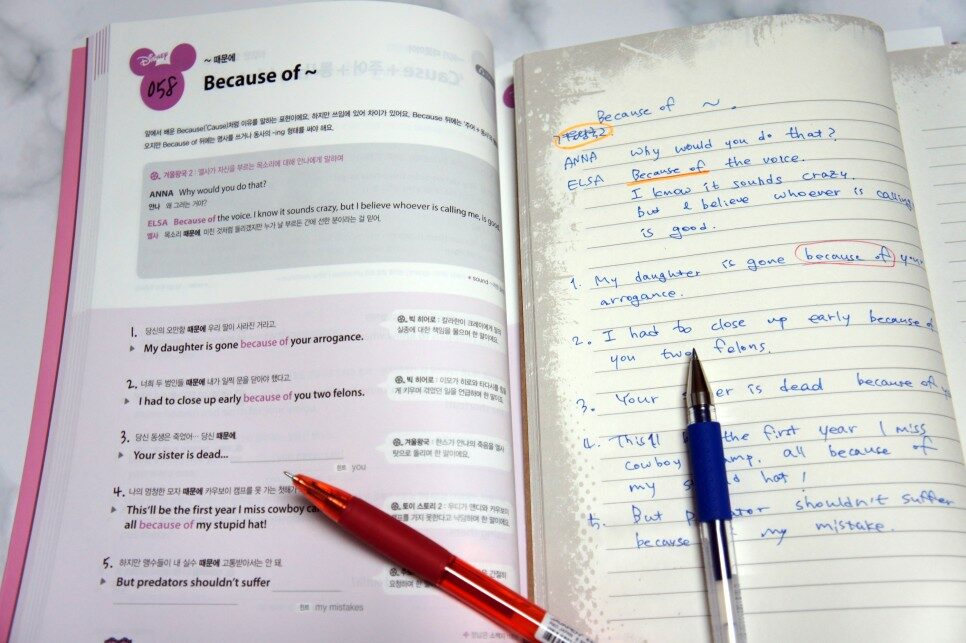 Disney
058
~ 때문에
Because of ~
앞에서 배운 Because('Cause)처럼 이유를 말하는 표현이에요. 하지만 쓰임에 있어 차이가 있어요. Because 뒤에는 '주어+동사
오지만 Because of 뒤에는 명사를 쓰거나 동사의 -ing 형태를 써야 해요.
겨울왕국 2 : 엘사가 자신을 부르는 목소리에 대해 안나에게 말하며
ANNA Why would you do that?
안나 왜 그러는 거야?
ELSA Because of the voice. I know it sounds crazy, but I believe whoever is calling me, is good.
엘사 목소리 때문에. 미친 것처럼 들리겠지만 누가 날 부르든 간에 선한 분이라는 걸 믿어.
sound
1. 당신의 오만함 때문에 우리 딸이 사라진 거라고.
My daughter is gone because of your arrogance.
빅 히어로 : 칼라한이 크레이에게
실종에 대한 책임을 물으며 한 말이에요.
2. 너희 두 범인들 때문에 내가 일찍 문을 닫아야 했다고.
I had to close up early because of you two felons.
빅 히어로 : 이모가 히로와 타다시를
게 키우며 겪었던 일을 언급하며 한 말이에요.
3. 당신 동생은 죽었어… 당신 때문에.
Your sister is dead...
힌트 you
겨울왕국 : 한스가 안나의 죽음을 엘사
탓으로 돌리며 한 말이에요.
4. 나의 멍청한 모자 때문에 카우보이 캠프를 못 가는 첫해가
This'll be the first year I miss cowboy
all because of my stupid hat!
토이 스토리 2 : 우디가 앤디와 카우보이
캠프를 가지 못한다고 낙담하며 한 말이에요.
5. 하지만 맹수들이 내 실수 때문에 고통받아서는 안 돼.
But predators shouldn't suffer
힌트 my mistakes
요청하며 한 말이에요.
Because of ~.
겨울왕국2
ANNA Why would you do that?
ELSA Because of the voice.
I know it sounds crazy.
But I believe whoever is calling
is good.
1. My daughter is gone because of your
arrogance.
2. I had to close up early because of
you two felons.
3. Your is dead because of
4. This'll the first year I miss
cowboy all because of
my hat!
5. But shouldn't suffer
because my mistake.